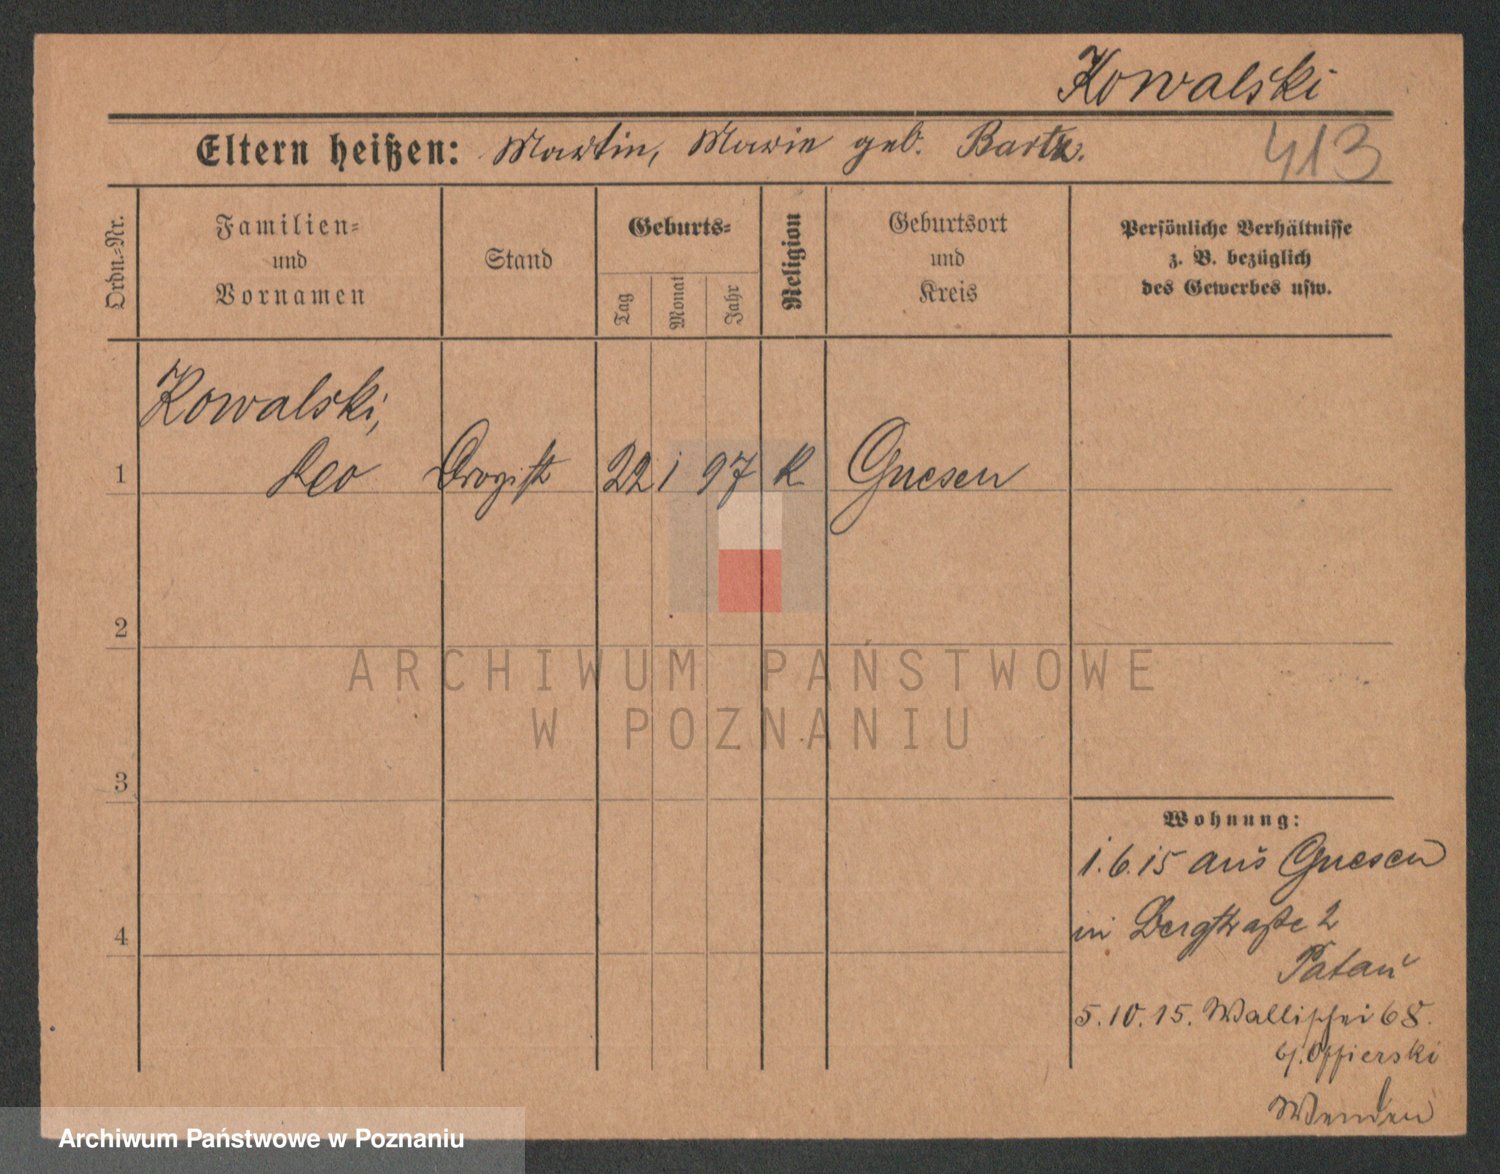 Kowalski
Eltern heißen: Martin, Marie geb. Bartz.
413
Ordn.-Nr.
Familien- und Vornamen
Stand
Geburts-
Tag
Monat
Jahr
Religion
Geburtsort und Kreis
Persönliche Verhältnisse
z. B. bezüglich
des Gewerbes usw.
Kowalski,
1 Leo Drogist 22 1 97 K. Gnesen
2
3
4
Wohnung:
1.6.15 aus Gnesen
in Bergstraße 2
5.10.15. Wallischei 68.
Wenden
ARCHIWUM PAŃSTWOWE
W POZNANIU
Archiwum Państwowe w Poznaniu